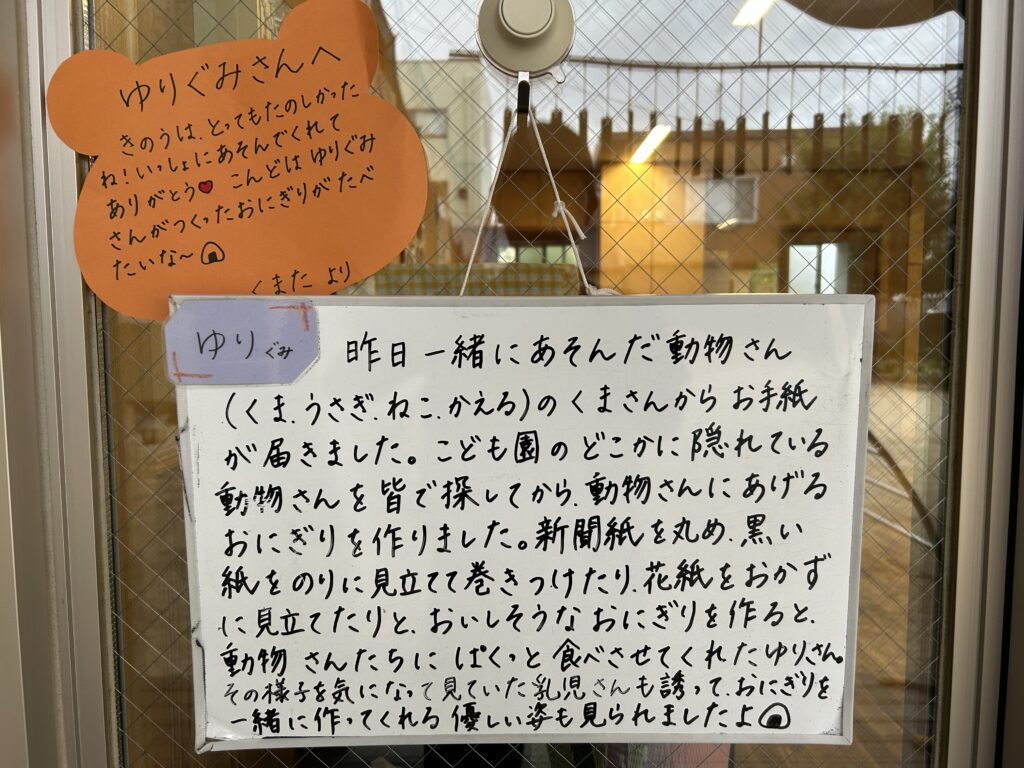 ゆりぐみさんへ
きのうは、とってもたのしかった
ね！いっしょにあそんでくれて
ありがとう♥ こんどは ゆりぐみ
さんがつくったおにぎりがたべ
たいな〜🍙
くまた より
ゆりぐみ
昨日一緒にあそんだ動物さん
(くま、うさぎ、ねこ、かえる)のくまさんからお手紙
が届きました。こども園のどこかに隠れている
動物さんを皆で探してから、動物さんにあげる
おにぎりを作りました。新聞紙を丸め、黒い
紙をのりに見立てて巻きつけたり、花紙をおかず
に見立てたりと、おいしそうなおにぎりを作ると、
動物さんたちにぱくっと食べさせてくれたゆりさん。
その様子を気になって見ていた乳児さんも誘って、おにぎりを
一緒に作ってくれる優しい姿も見られましたよ🍙